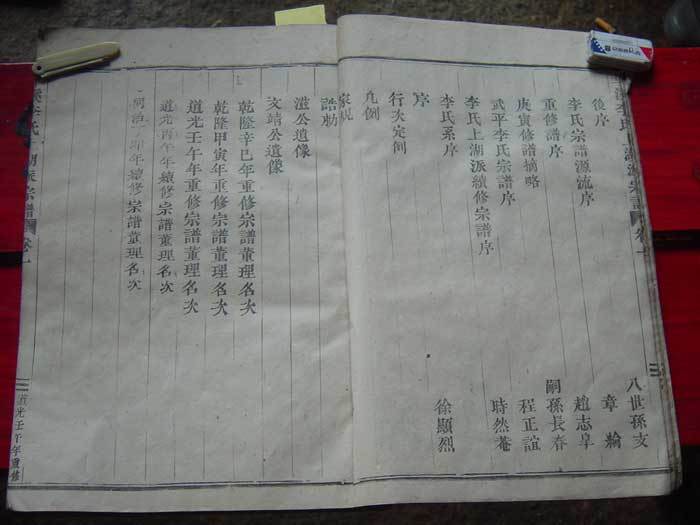 李氏上湖派宗譜 卷一
後序 八世孫支
李氏宗譜源流序 章綸
重修譜序 趙志皐
庚寅修譜摘略 嗣孫長春
武平李氏宗譜序 程正誼
李氏上湖派續修宗譜序 時然菴
李氏系序 徐顯烈
序
行次定例
凡例
家規
誥勅
滋公遺像
文靖公遺像
乾隆辛巳年重修宗譜董理名次
乾隆甲寅年重修宗譜董理名次
道光壬午年重修宗譜董理名次
道光丙午年續修宗譜董理名次
同治 年續修宗譜董理名次
李氏上湖派宗譜 卷一
道光壬午年重修